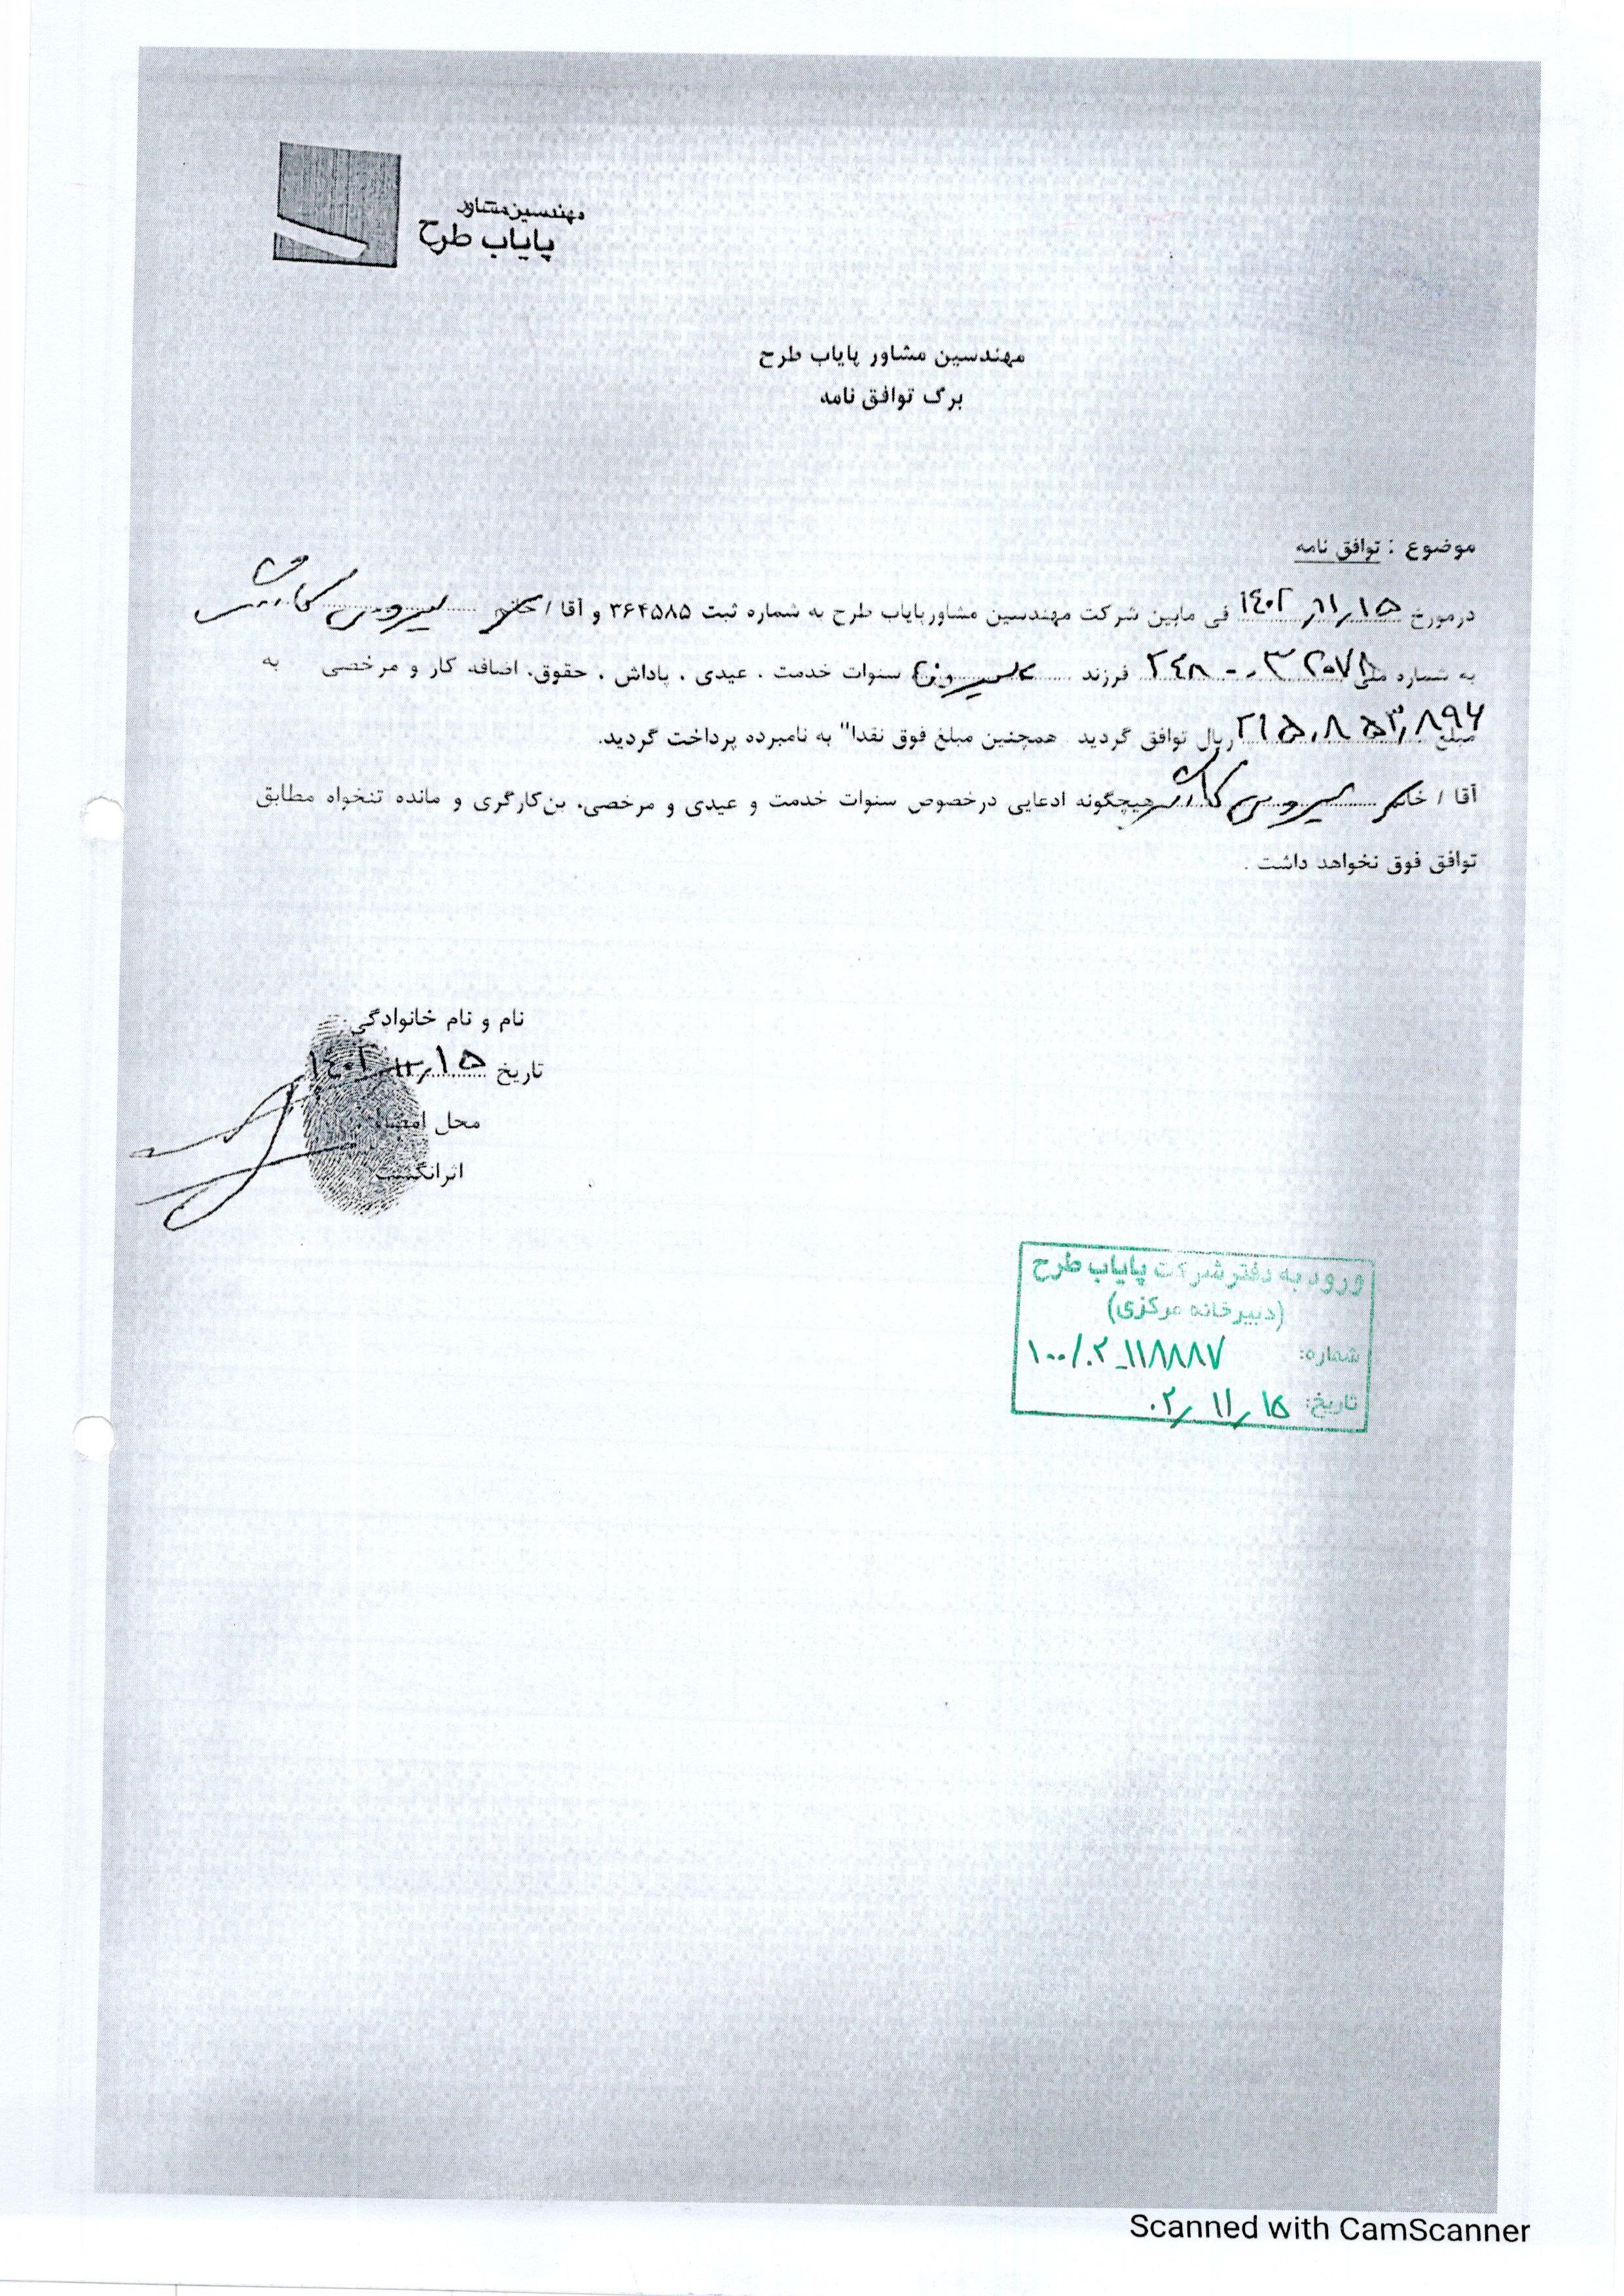 مهندسین مشاور
پایاب طرح
مهندسین مشاور پایاب طرح
برگ توافق نامه
موضوع : توافق نامه
درمورخ ۱۴۰۲/۱۱/۱۵ فی مابین شرکت مهندسین مشاورپایاب طرح به شماره ثبت ۳۶۴۵۸۵ و آقا / خانم سیروس
به شماره ملی فرزند سنوات خدمت ، عیدی ، پاداش ، حقوق، اضافه کار و مرخصی به
مبلغ ۲۱۵,۸۵۳,۸۹۶ ریال توافق گردید همچنین مبلغ فوق نقدا" به نامبرده پرداخت گردید.
آقا / خانم سیروس هیچگونه ادعایی درخصوص سنوات خدمت و عیدی و مرخصی، بن‌کارگری و مانده تنخواه مطابق
توافق فوق نخواهد داشت .
نام و نام خانوادگی:
تاریخ ۱۴۰۲/۱۱/۱۵
محل امضاء:
اثرانگشت
ورود به دفتر شرکت پایاب طرح
(دبیرخانه مرکزی)
شماره: ۱۰۰/۰۲-۱۱۸۸۸۷
تاریخ: ۰۲/۱۱/۱۵
Scanned with CamScanner